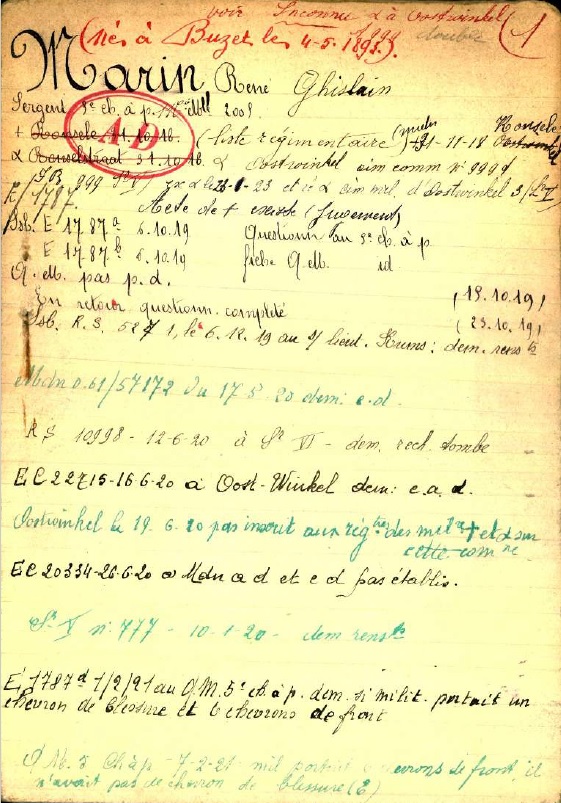 voir Inconnu à Oostwinkel
(Nés à Buzet le 4-5-1893).
double
1
Marin René Ghislain
Sergent 5e ch. à p. Mle 2005
+ Ronsele 31.10.18. (liste régimentaire) 21-11-18 Ronsele
AD
Ronselstraat 31.10.18. Oostwinkel cim comm n° 999
le 23-1-23 cim mil. d'Oostwinkel
E/1787. Acte de + existe (Jugement)
Ssb. E 1787a 6.10.19 Questionn au 5e ch. à p.
E 1787b 6.10.19 fiche Q.M. id
Q.M. pas p.d. (13.10.19)
En retour questionn. complété (23.10.19)
Ssb. R.S. 527 1, le 6.12.19 au s/lieut. dem. renste
Mdn 0.61/57172 du 17.5.20 dem: e.d.
RS 10998-12-6-20 à Sr VI - dem. rech. tombe
EC 22715-16-6-20 à Oost-Winkel dem: e.a.d.
Oostwinkel le 19.6.20 pas inscrit aux regtres des milres + et d sur
cette comne
EC 20334-26-6-20 Mdn a d et e d pas établis.
Sr V n° 777 - 10-1-20 - dem rensts
E 1787d 1/2/21 au Q.M. 5e ch à p. dem. si milit. portait un
chevron de blessure et 6 chevrons de front
QM. 5 Ch à p - 7-2-21 mil portait chevrons de front, il
n'avait pas de chevron de blessure (E)